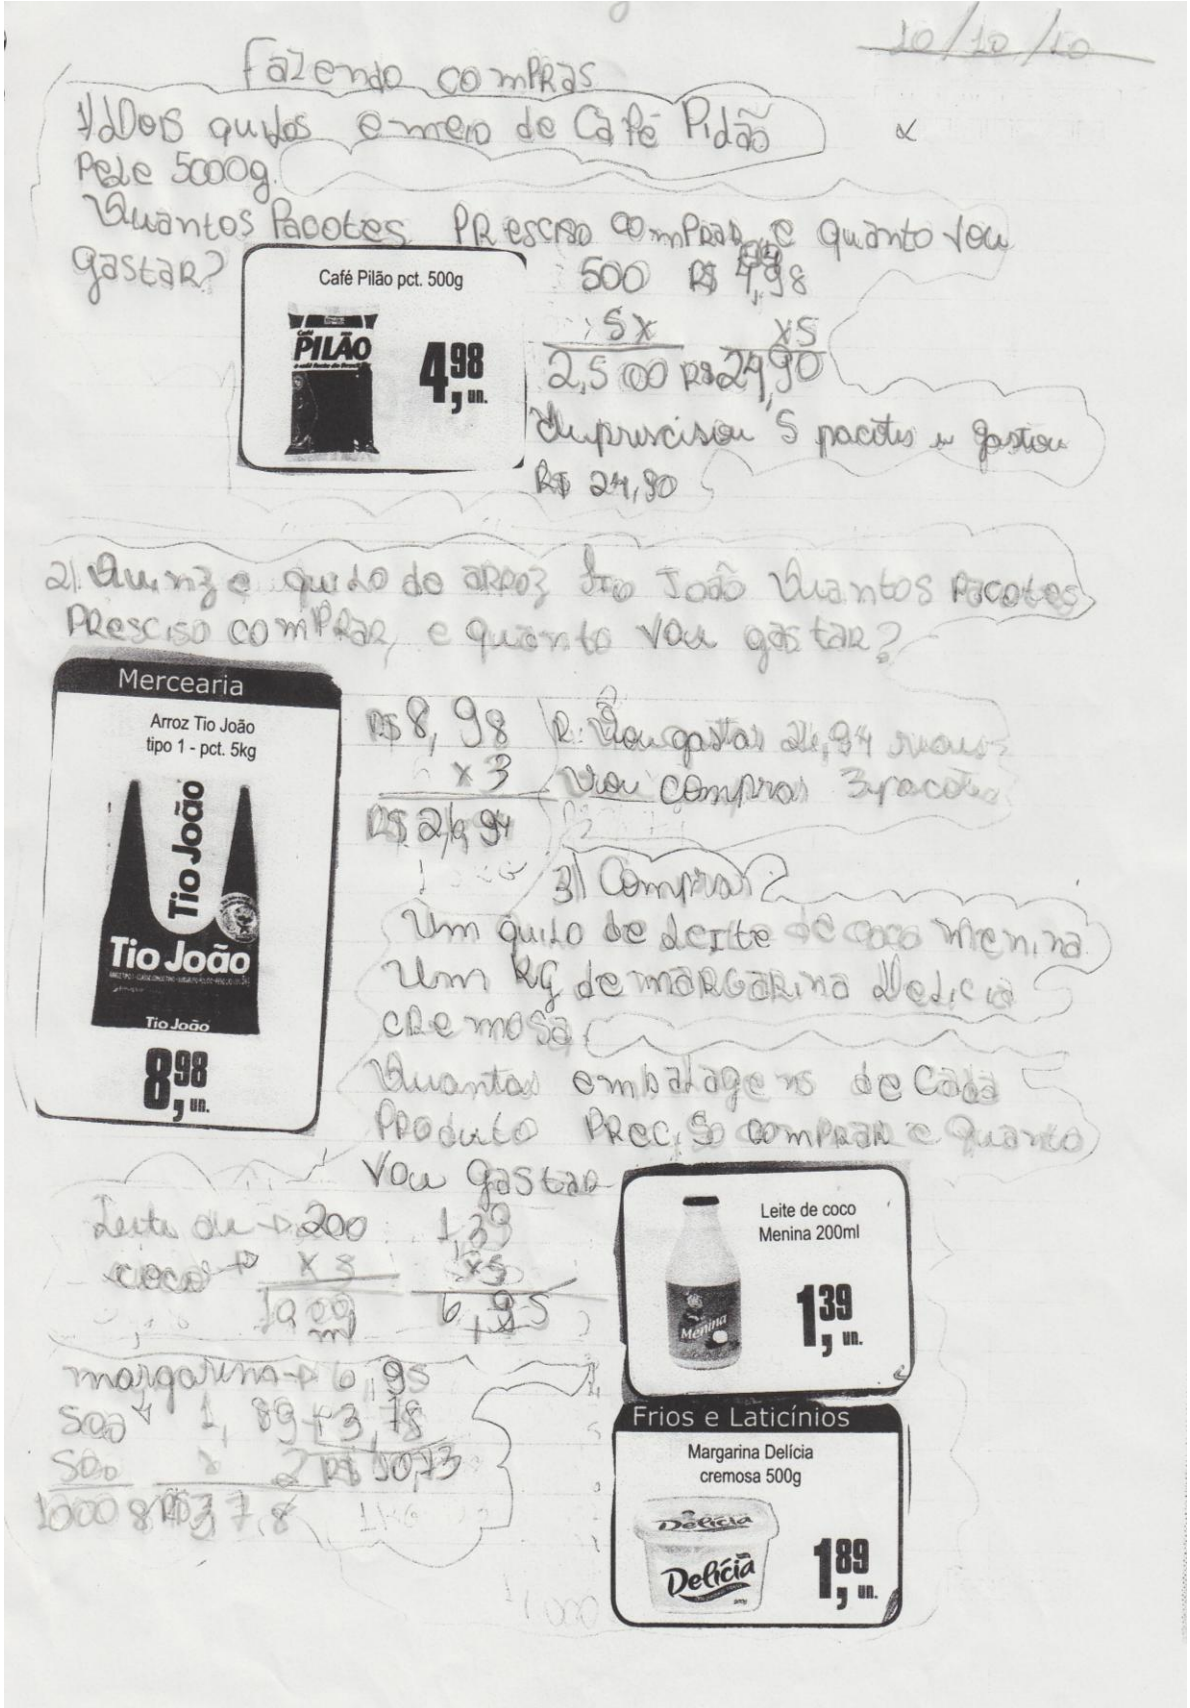 10/10/10
Fazendo comPRas
1) Dois quilos e meio de Café Pilão
Pele 5000g.
Quantos Pacotes PResciso comPRaR e quanto vou
gastaR?
Café Pilão pct. 500g
Café
PILÃO
4,98 un.
500 R$ 4,98
5x x5
2,500 R$24,90
Eu prescisou 5 pacotes e gastou
R$ 24,90
2) Quinze quilo de aRRoz Tio João Quantos Pacotes
PResciso comPRaR, e quanto vou gastaR?
Mercearia
Arroz Tio João
tipo 1 - pct. 5kg
Tio João
Tio João
Tio João
8,98 un.
R$ 8,98
x3
R$ 26,94
R: Vou gastar 26,94 reais
vou comprar 3 pacotes
3) Comprar
Um quilo de Leite de coco menina
Um KG de maRGaRina Delicia
cRemosa
Quantas embalagens de cada
PRoduto PReciso comPRaR e quanto
Vou gastaR
Leite de coco
Menina 200ml
Menina
1,39 un.
Leite de → 200 1,39
coco → x5 x5
1000 6,95
ml
margarina → 6,95
500 1,89 +3,78
500 2 R$ 10,73
1000 g R$ 3,78
1KG
Frios e Laticínios
Margarina Delícia
cremosa 500g
Delícia
Delícia
1,89 un.